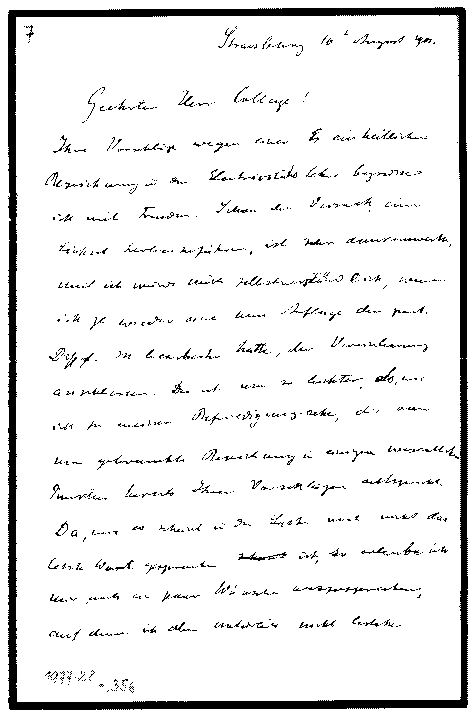 7
Strassburg 10 August 901.
Geehrter Herr College!
Ihre Vorschläge wegen einer Es einheitlichen
Bezeichnung in der Elektricitätslehre begrüsse
ich mit Freuden. Schon der Versuch, eine
Einheit herbeizuführen, ist sehr dankenswerth,
und ich würde mich selbstverständlich, wenn
ich je wieder eine neue Auflage der part.
Diffgl. zu bearbeiten hätte, der Vereinbarung
anschliessen. Das ist um so leichter, als, wie
ich zu meiner Befriedigung sehe, die von
mir gebrauchte Bezeichnung in einigen wesentlichen
Punkten bereits Ihren Vorschlägen entspricht.
Da, wie es scheint in der Sache noch nicht das
letzte Wort gesprochen ist, so erlaube ich
mir, noch ein paar Wünsche auszusprechen,
auf denen ich aber natürlich nicht bestehe.
1977-22
.356